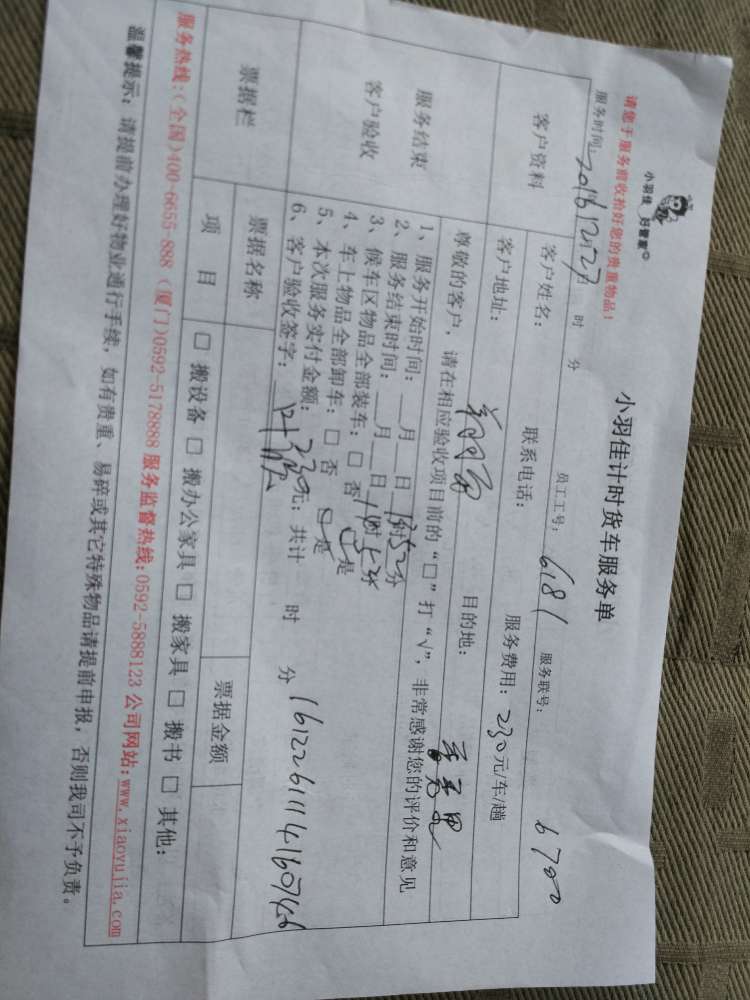 小羽佳 好管家
小羽佳计时货车服务单
请您于服务前收拾好您的贵重物品！
服务时间：2016.12月27日 时 分 员工工号：6181 服务联号：6700
客户资料
客户姓名： 联系电话： 服务费用：230元/车/趟
客户地址： 目的地：
服务结束
客户验收
尊敬的客户，请在相应验收项目前的“□”打“√”，非常感谢您的评价和意见
1、服务开始时间：__月__日13时52分
2、服务结束时间：__月__日
3、候车区物品全部装车：□ 否 □ 是
4、车上物品全部卸车：□ 否 □ 是
5、本次服务实付金额：230元；共计 时 分
6、客户验收签字：
161226111416071456
票据栏
票据名称 票据金额
项 目 □ 搬设备 □ 搬办公家具 □ 搬家具 □ 搬书 □ 其他：
服务热线：（全国）400-6655-888（厦门）0592-5178888 服务监督热线：0592-5888123 公司网站：www.xiaoyujia.com
温馨提示：请提前办理好物业通行手续，如有贵重、易碎或其它特殊物品请提前申报，否则我司不予负责。